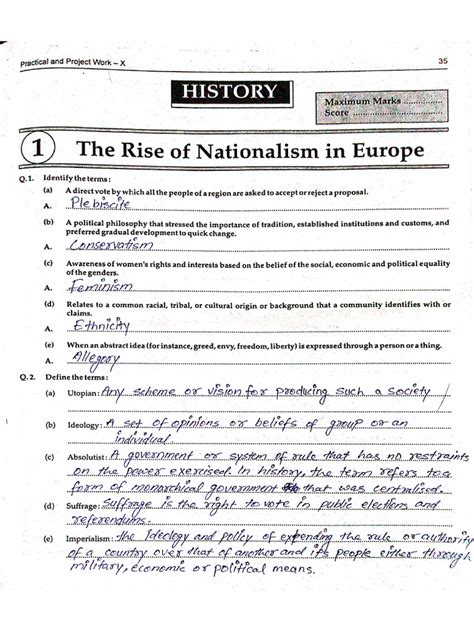 Practical and Project Work – X 35
HISTORY
Maximum Marks ..............
Score ..............
1 The Rise of Nationalism in Europe
Q.1. Identify the terms :
(a) A direct vote by which all the people of a region are asked to accept or reject a proposal.
A. Plebiscite
(b) A political philosophy that stressed the importance of tradition, established institutions and customs, and
preferred gradual development to quick change.
A. Conservatism
(c) Awareness of women's rights and interests based on the belief of the social, economic and political equality
of the genders.
A. Feminism
(d) Relates to a common racial, tribal, or cultural origin or background that a community identifies with or
claims.
A. Ethnicity
(e) When an abstract idea (for instance, greed, envy, freedom, liberty) is expressed through a person or a thing.
A. Allegory
Q.2. Define the terms :
(a) Utopian : Any scheme or vision for producing such a society
(b) Ideology : A set of opinions or beliefs of group or an
individual.
(c) Absolutist : A government or system of rule that has no restraints
on the power exercised. In history, the term refers to a
form of monarchical government that was centralised.
(d) Suffrage : Suffrage is the right to vote in public elections and
referendums.
(e) Imperialism : the ideology and policy of expending the rule or authority
of a country over that of another and its people either through
military, economic or political means.